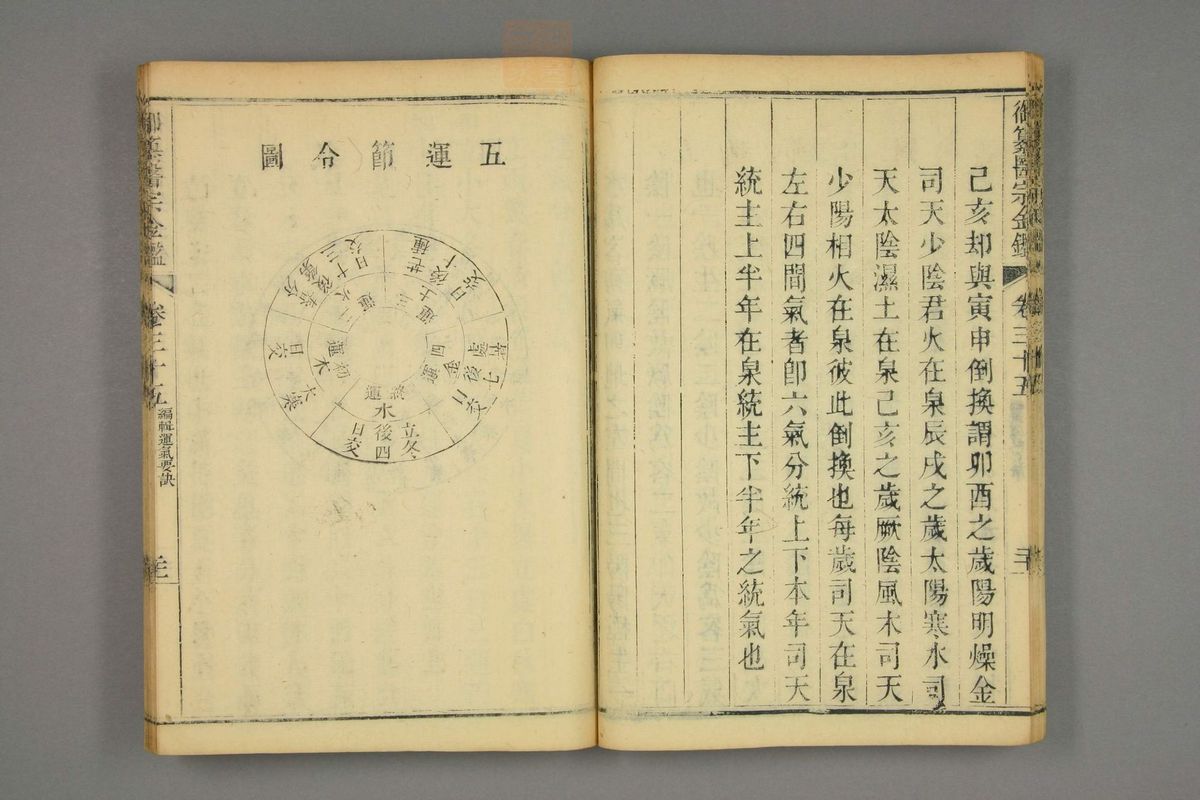 御纂醫宗金鑑
卷三十五
己亥却與寅申倒換謂卯酉之歲陽明燥金
司天少陰君火在泉辰戌之歲太陽寒水司
天太陰濕土在泉己亥之歲厥陰風木司天
少陽相火在泉彼此倒換也每歲司天在泉
左右四間氣者卽六氣分統上下本年司天
統主上半年在泉統主下半年之統氣也
五運節令圖
大寒
日交
初運木
春分
後
日十三交
二運火
芒種
後十
日交
三運土
處暑
後七
日交
四運金
立冬
後四
日交
終運
水
御纂醫宗金鑑
卷三十五
編輯運氣要訣